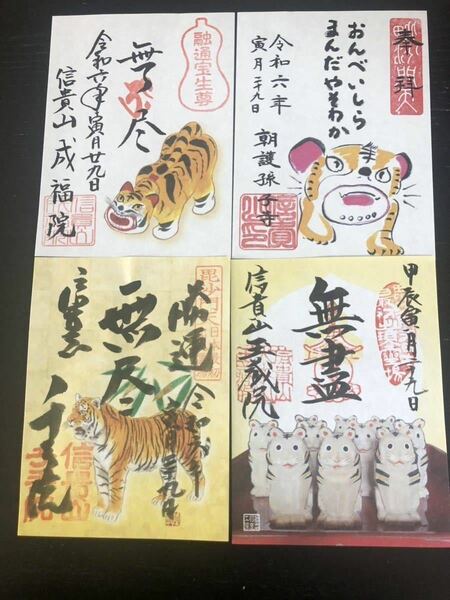 融通宝生尊
無尽
令和六年寅月廿九日
信貴山成福院
奉拝
おんべいしら
まんだやそわか
令和六年
寅月二十九日
朝護孫子寺
開運
無尽
令和六年
寅月二十九日
信貴山
千手院
甲辰寅月二十九日
無盡
信貴山玉蔵院